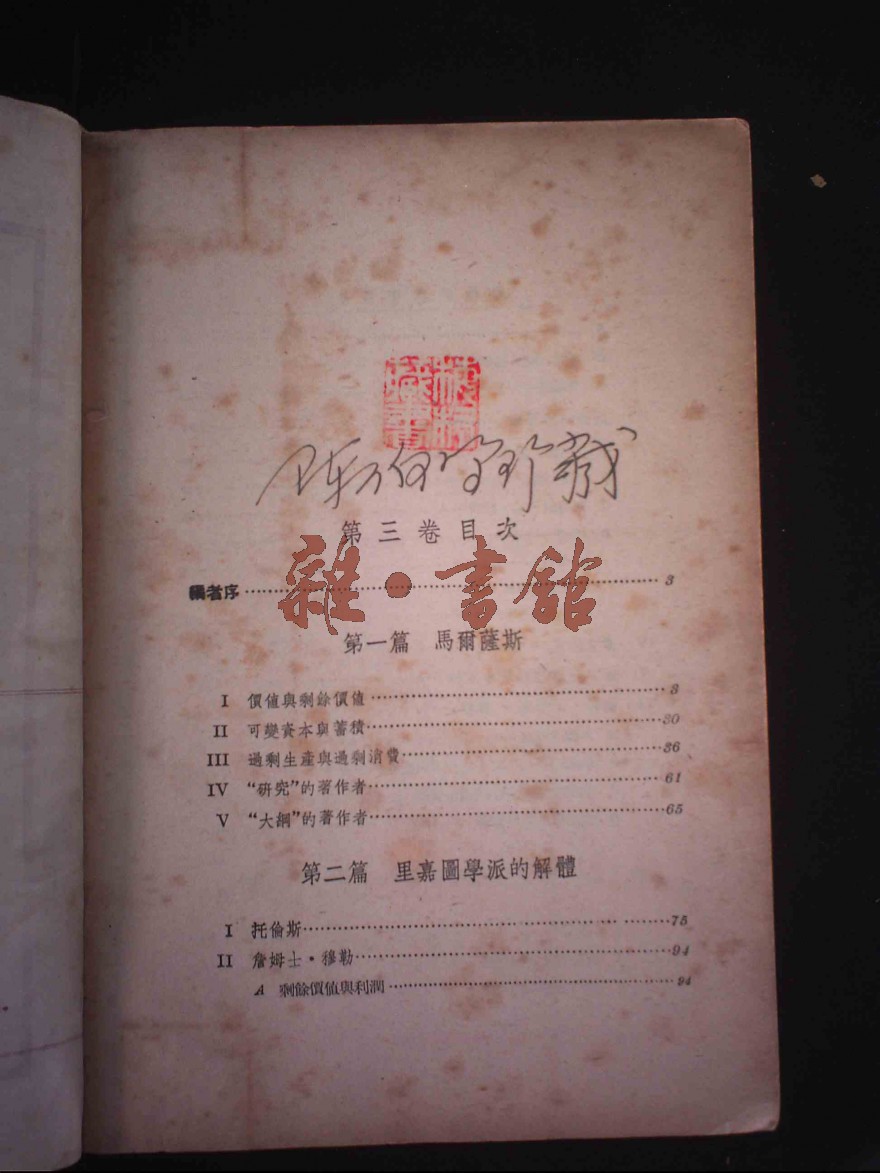 藏書
珍藏
第三卷目次
雜·書館
編者序 3
第一篇 馬爾薩斯
I 價值與剩餘價值 3
II 可變資本與蓄積 30
III 過剩生產與過剩消費 36
IV “研究”的著作者 61
V “大綱”的著作者 65
第二篇 里嘉圖學派的解體
I 托倫斯 75
II 詹姆士·穆勒 94
A 剩餘價值與利潤 94